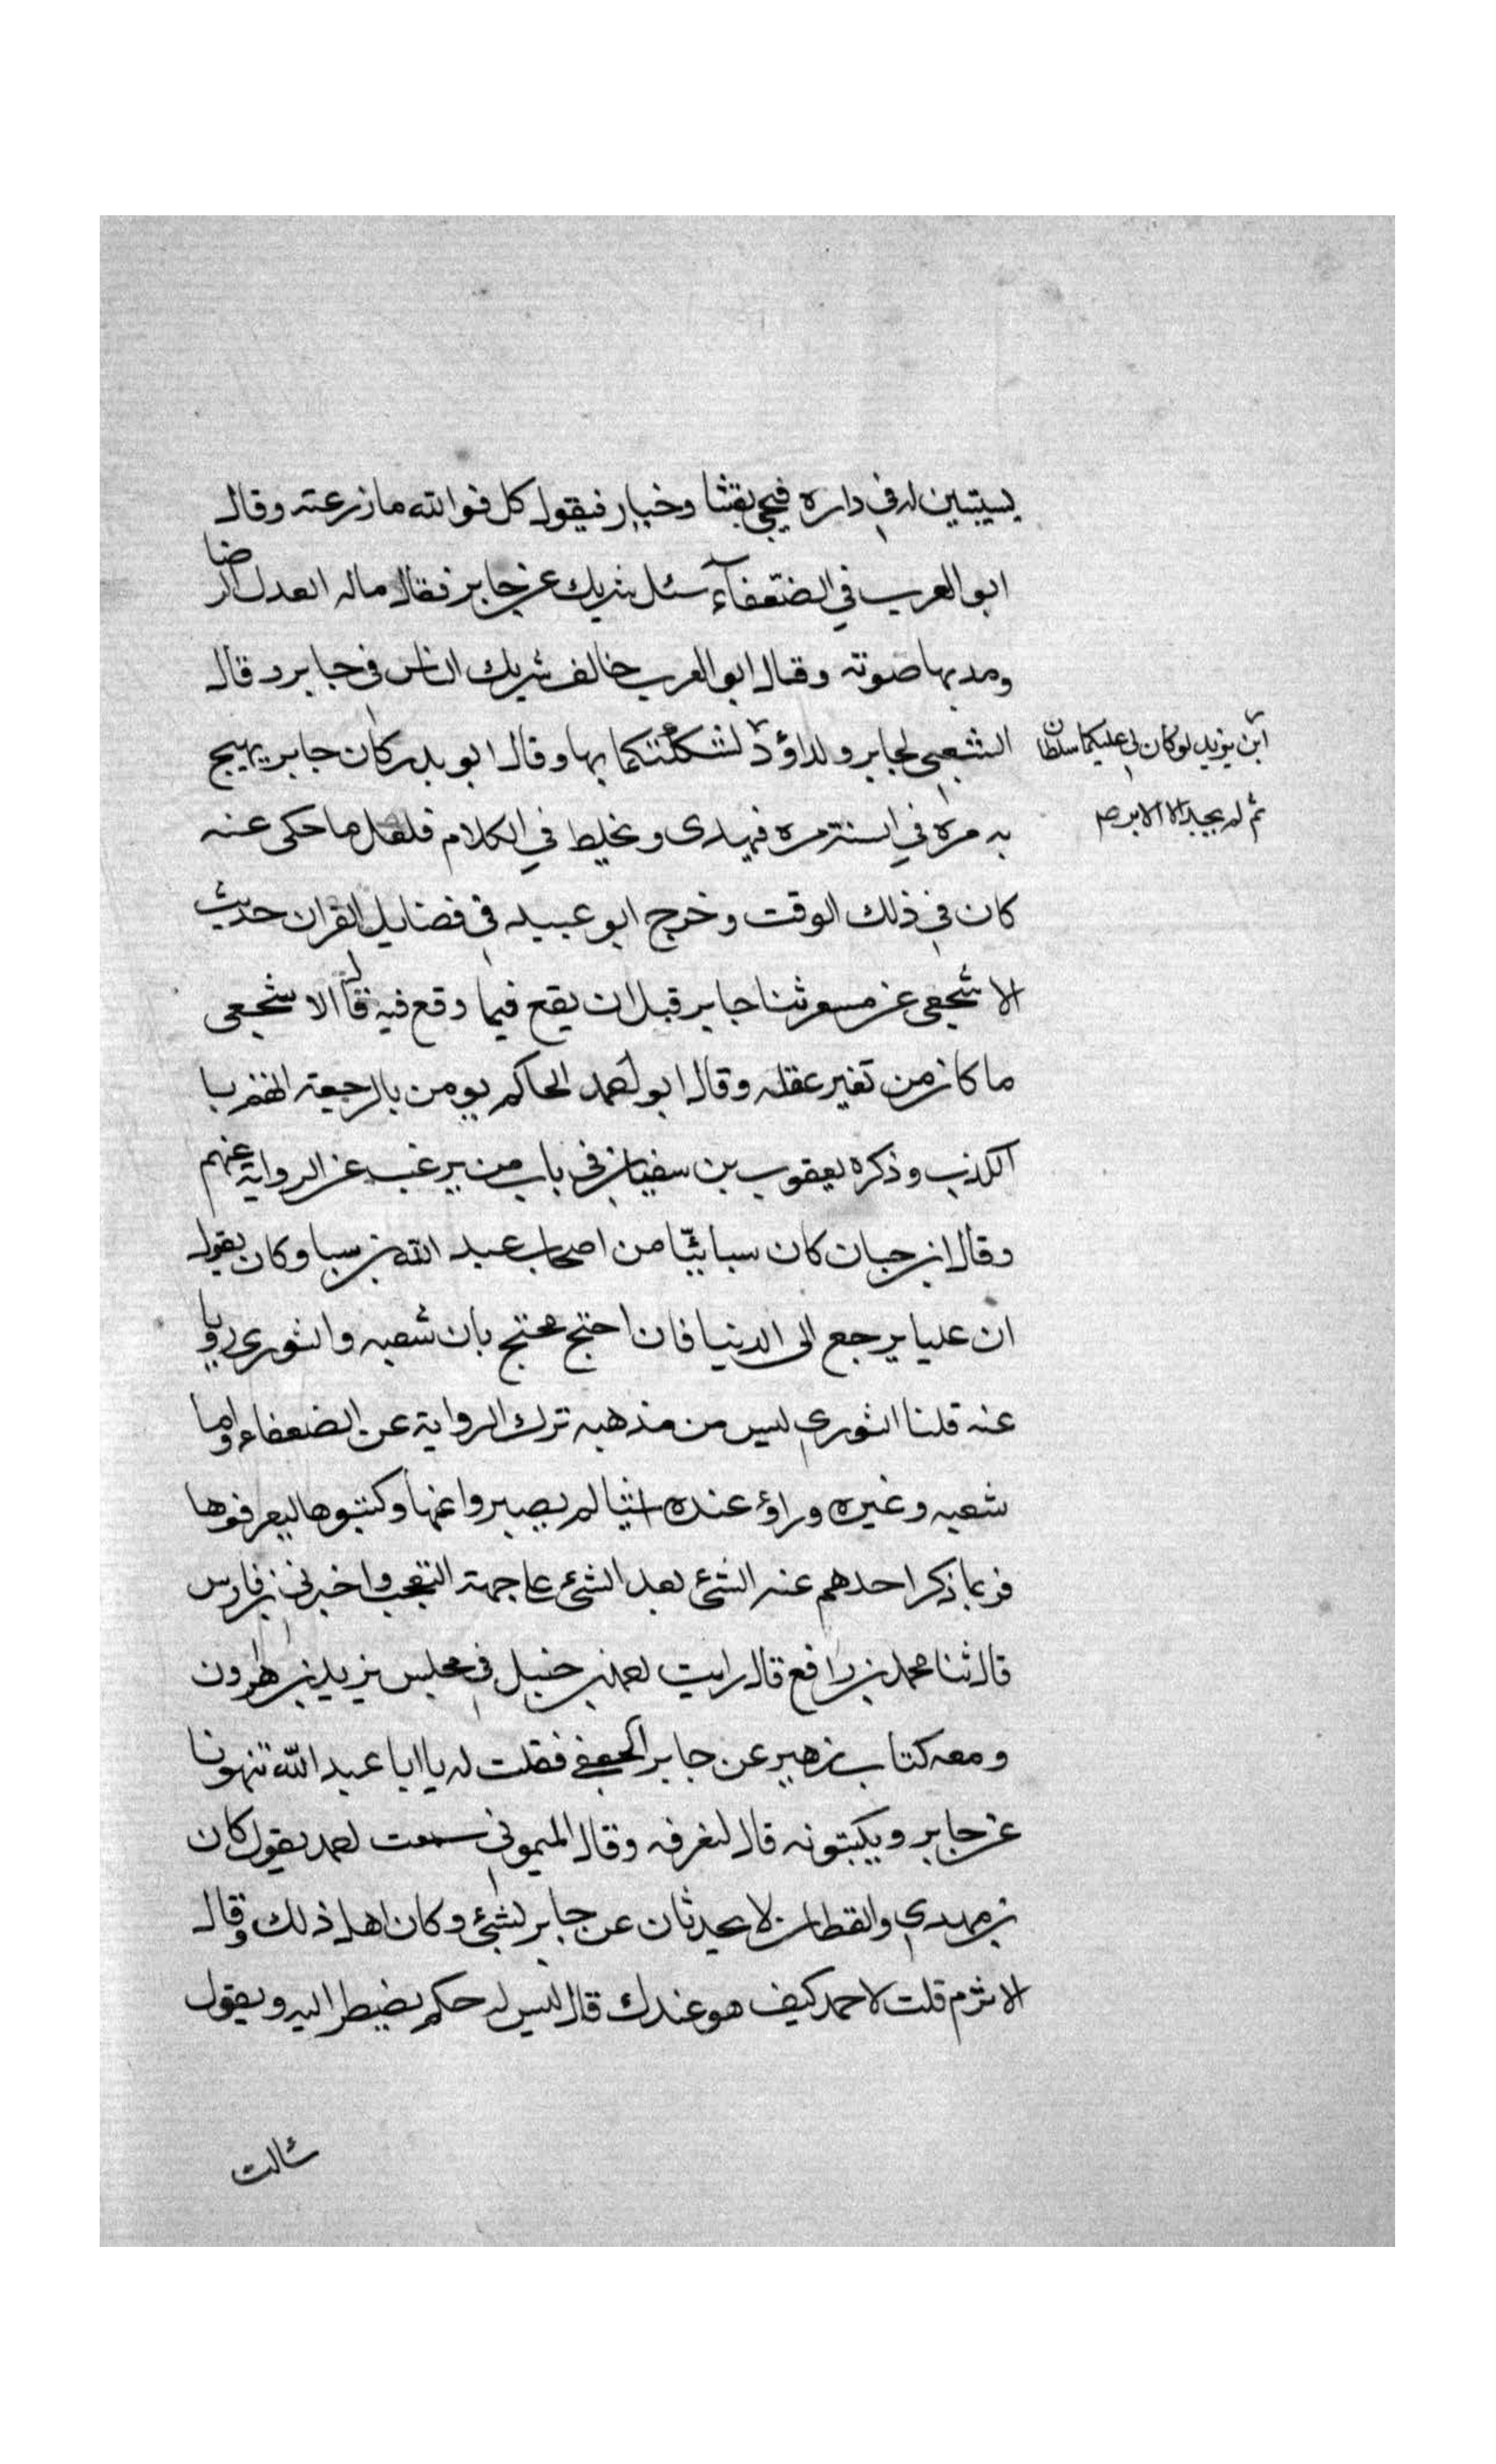 بسيتين له في داره فيجي بقثا وخيار فيقول كل فوالله ما زرعته وقال
ابو العرب في الضعفآء سئل شريك عن جابر فقال ماله العدل الرضا
ومد بها صوته وقال ابو العرب خالف شريك الناس في جابر وقال
الشعبي لجابر ولداؤد لنتكلتكما بها وقال ابو بدر كان جابر يهيج
ابن يزيد لو كان لي عليكما سلطان
ثم لم يجد الا الابر
به مرة في السنة مرة فيهدى ويخلط في الكلام فلعل ما حكى عنه
كان في ذلك الوقت وخرج ابو عبيد في فضايل القران حديث
الاشجعي عن مسعر ثنا جابر قبل ان يقع فيما وقع فيه قال الاشجعي
ما كان من تغير عقله وقال ابو احمد الحاكم يومن بالرجعة اتهم با
الكذب وذكره يعقوب بن سفيان في باب من يرغب عن الرواية عنهم
وقال ابن حبان كان سبائيّا من اصحاب عبد الله بن سبا وكان يقول
ان عليا يرجع الى الدنيا فان احتج محتج بان شعبه والثوري رويا
عنه قلنا الثوري ليس من مذهبه ترك الرواية عن الضعفاء واما
شعبه وغيره وراؤ عنده اشيا لم يصبروا عنها وكتبوها ليعرفوها
فربما ذكر احدهم عنه الشئ بعد الشئ على جهة التعجب واخبرني بن فارس
قال ثنا محمد بن رافع قال رايت احمد بن حنبل في مجلس يزيد بن هارون
ومعه كتاب زهير عن جابر الجعفي فقلت له يا ابا عبد الله تنهونا
عن جابر ويكتبونه قال لنعرفه وقال الميموني سمعت احمد يقول كان
بن مهدي والقطان لا يحدثان عن جابر لشئ وكان اهل ذلك وقال
الاثرم قلت لاحمد كيف هو عندك قال ليس له حكم يضطر اليه ويقول
سالت